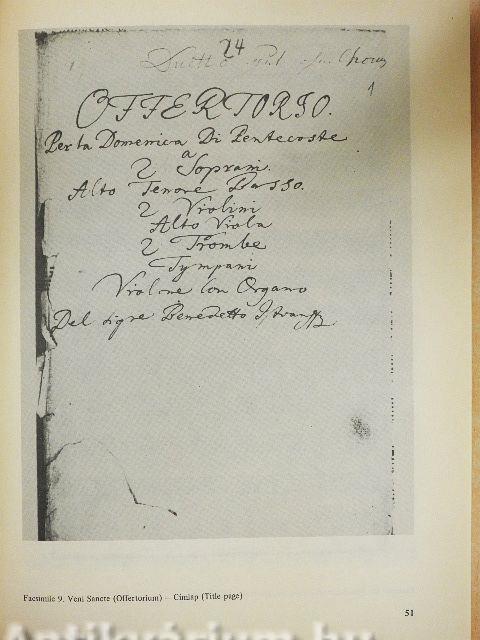 24
Duetto
1
OFFERTORIO.
Per la Domenica Di Pentecoste
a
2 Soprani.
Alto Tenore Basso.
2 Violini
Alto Viola
2 Trombe
Tympani
Violone Con Organo
Del Sigre Benedetto Istvanffy
Facsimile 9. Veni Sancte (Offertorium) – Címlap (Title page)
51
Antikvárium.hu